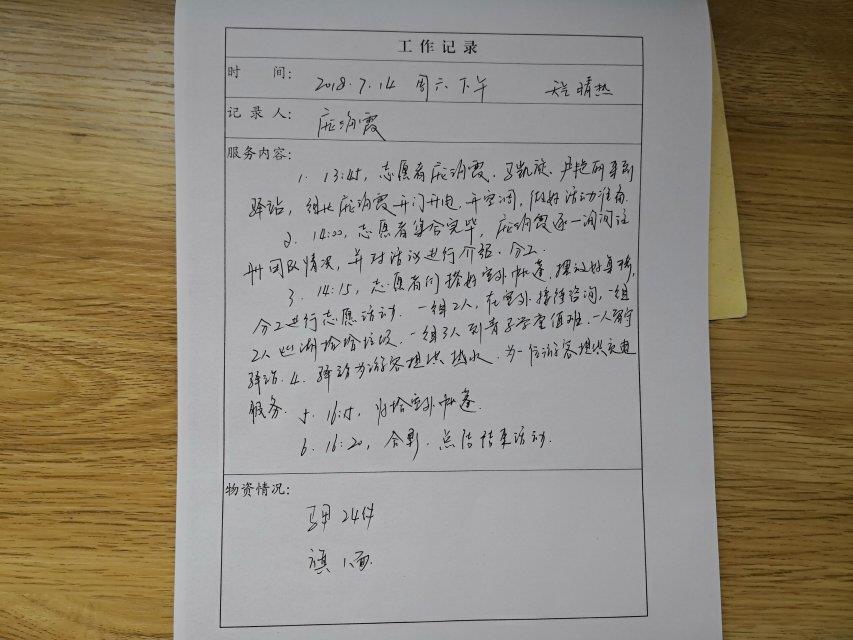 工作记录
时 间: 2018.7.14 周六下午 晴热
记录人: 庞 霞
服务内容:
1. 13:45, 志愿者庞 霞、马凯旋、尹艳 来到
驿站, 组长庞 霞开门开电, 开空调, 做好活动准备.
2. 14:00, 志愿者集合完毕, 庞 霞逐一询问注
册团队情况, 并对活动进行介绍、分工.
3. 14:15, 志愿者们搭好室外帐篷, 摆放好桌椅,
分工进行志愿活动. 一组2人, 在室外接待咨询, 一组
2人 湖捡拾垃圾, 一组3人到 学堂值班, 一人留守
驿站. 4. 驿站为游客提供热水, 为一位游客提供充电
服务. 5. 16:15, 收拾室外帐篷.
6. 16:20, 合影. 总结结束活动.
物资情况:
马甲 24件
旗 1面